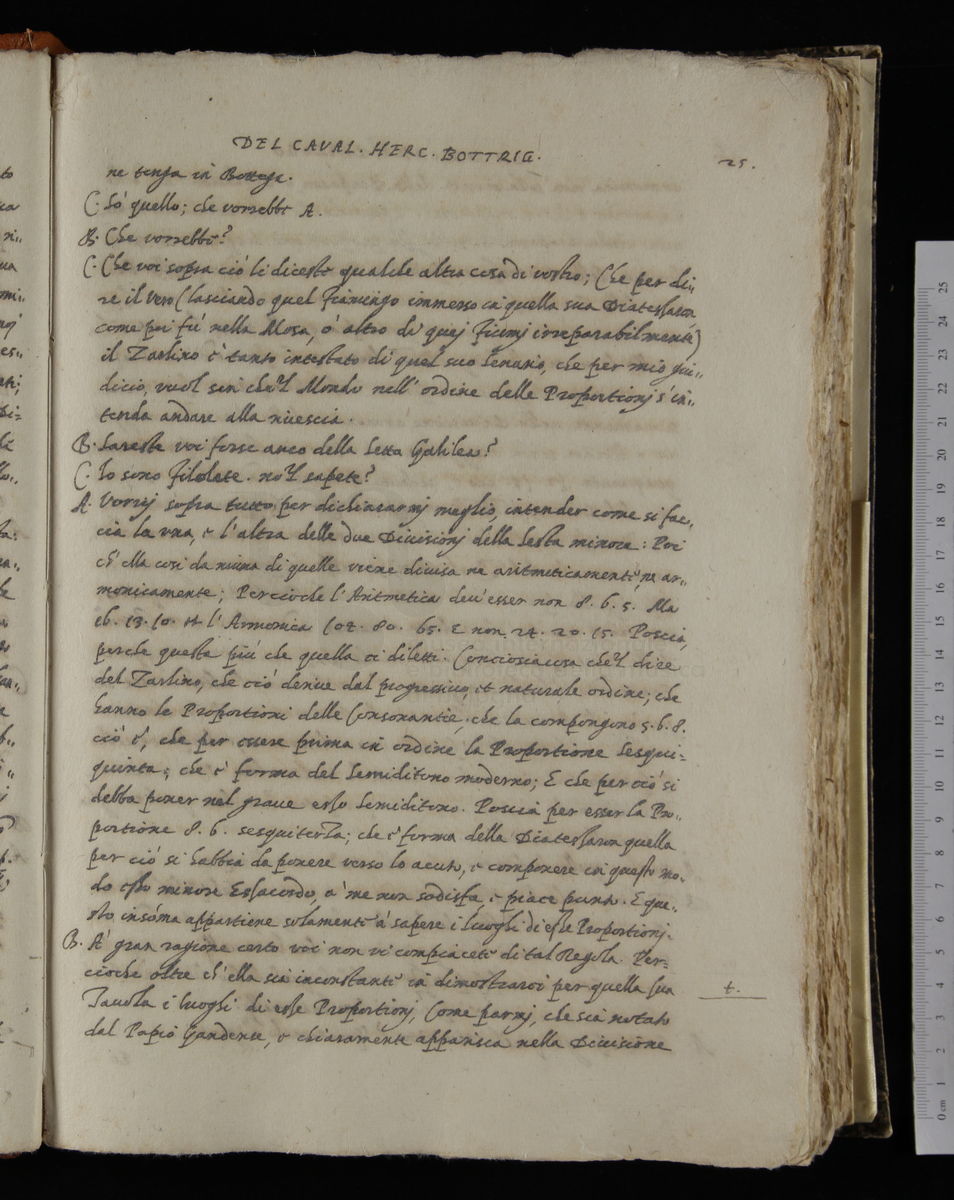 DEL CAVAL. HERC. BOTTRIG.
25.
ne tenga in Bottega.
C. Sò quello; che vorrebbe A.
B. Che vorrebbe?
C. Che voi sopra ciò li diceste qualche altra cosa di vostro; Che per di„
re il vero (lasciando quel Fiamingo immerso in quella sua Diatessaron
come poi fù nella Mosa, ò altro di quej Fiumj irreparabilmente)
il Zarlino è tanto intestato di quel suo Senario, che per mio giu„
dicio, vuol sin che'l Mondo nell' ordine delle Proportionj s'in„
tenda andare alla riuescia.
B. Sareste voi forse anco della Setta Galilea?
C. Io sono Filolete. no'l sapete?
A. Vorrej sopra tutto per dichiararmj meglio, intender come si fac„
cia la vna, e l'altra delle due Diuisionj della Sesta minore: Poi
ch' ella cosi da niuna di quelle viene diuisa ne aritmeticamente, ne ar„
monicamente; Percioche l'Aritmetica deu' esser non 8. 6. 5. Ma
16. 13. 10. et l'Armonica 104. 80. 65. E non 24. 20. 15. Poscia,
perche questa più che quella ci diletti. Conciosiacosa che'l dire
del Zarlino, che ciò deriue dal progressiuo, et naturale ordine; che
hanno le Proportioni delle Consonantie, che la compongono 5. 6. 8.
ciò è, che per essere prima in ordine la Proportione Sesqui„
quinta; che è forma del Semiditono moderno; E che per ciò si
debba poner nel graue esso Semiditono. Poscia per esser la Pro„
portione 8. 6. sesquiterza; che è forma della Diatessaron quella
per ciò si habbia da ponere verso lo acuto, e componere in questo mo„
do esso minore Essacordo, à me non sodisfa, e piace punto. E que„
sto insóma appartiene solamente à sapere i luoghi di esse Proportionj.
B. A' gran ragione certo voi non vi compiacete di tal Regola. Per„
cioche oltre ch' ella sia inconstante in dimostrarci per quella sua
Tauola i luoghi di esse Proportionj, Come parmj, che sia notato
t.
dal Papio Gandense, e chiaramente apparisca nella Diuisione